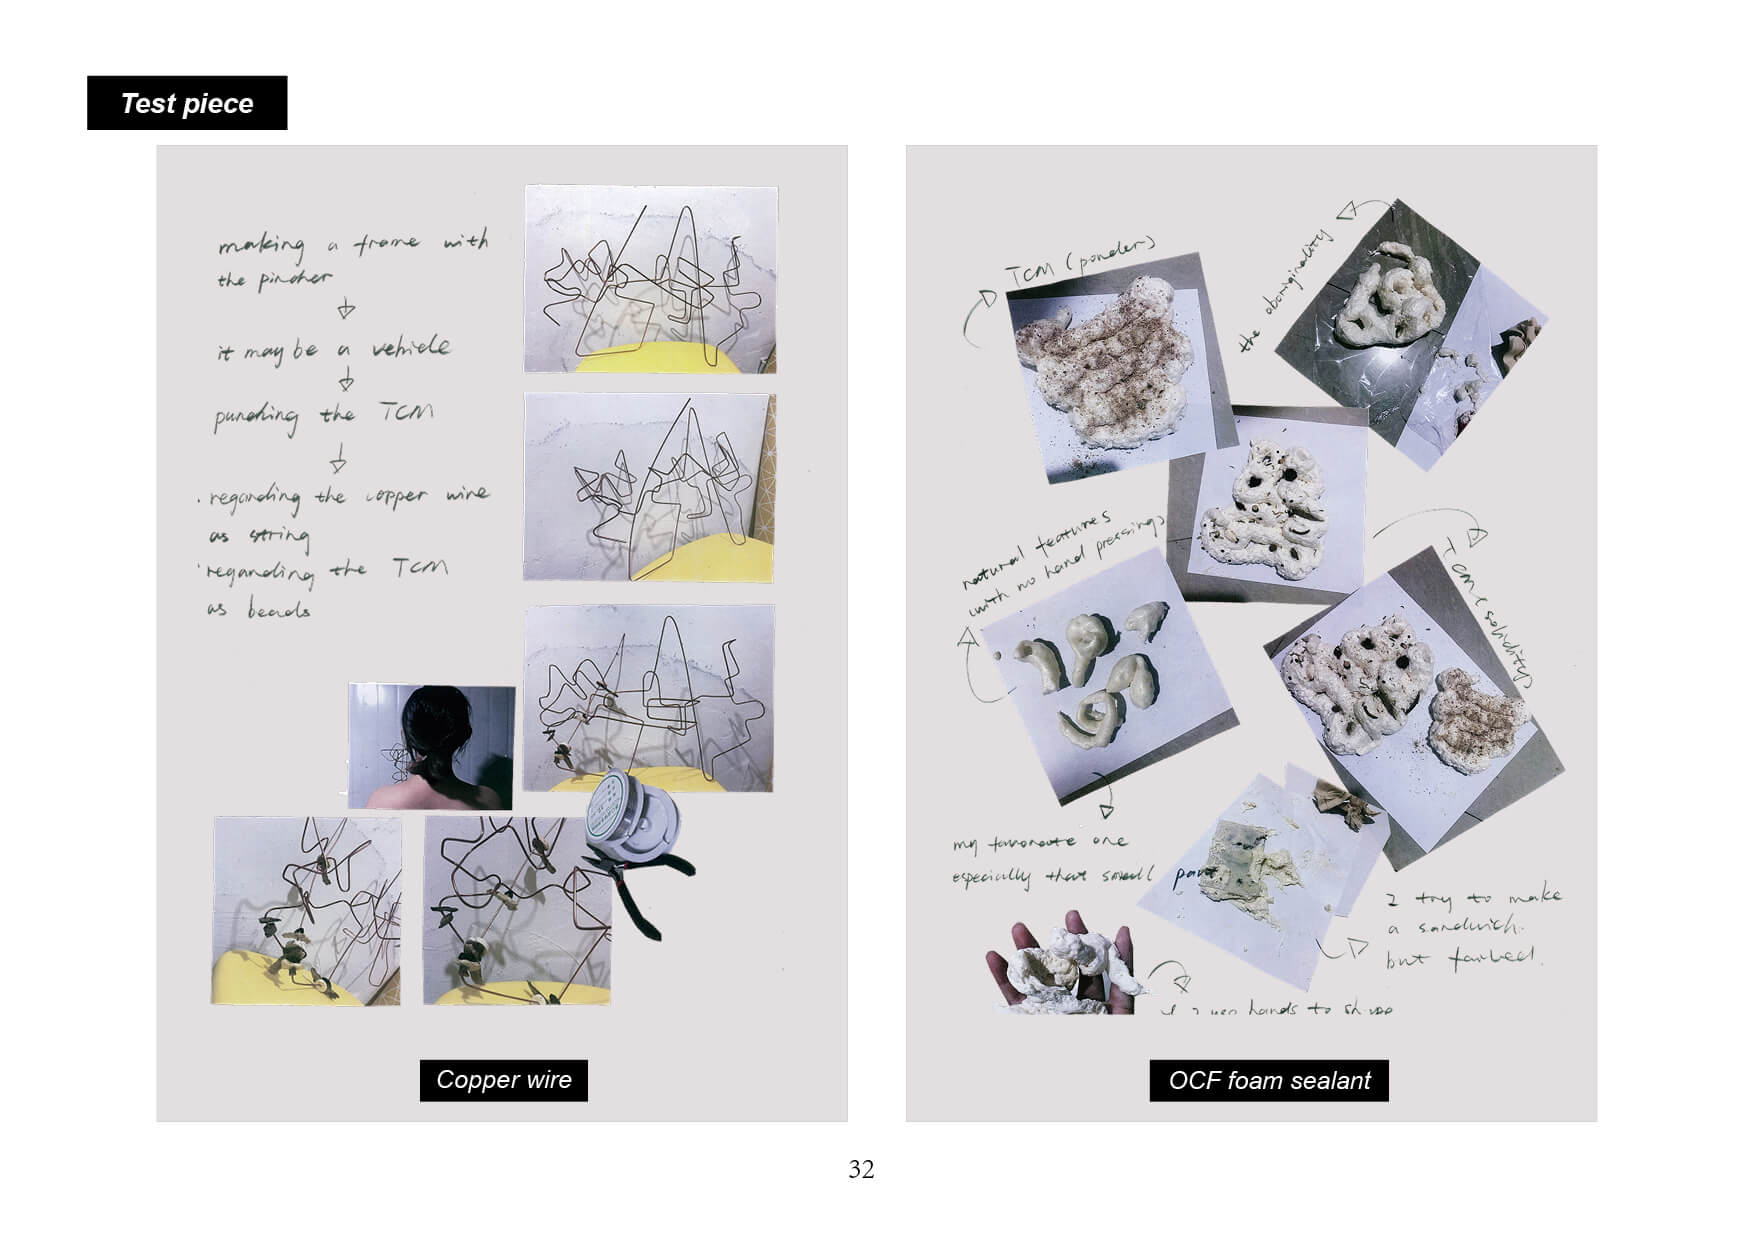 Test piece
making a frame with
the pincher
it may be a vehicle
punching the TCM
. regarding the copper wire
as string
. regarding the TCM
as beads
Copper wire
TCM (powder)
the aboriginality
natural features
with no hand pressings
TCM (solidity)
my favoroute one
especially that small part
I try to make
a sandwich.
but failed.
hands to
OCF foam sealant
32